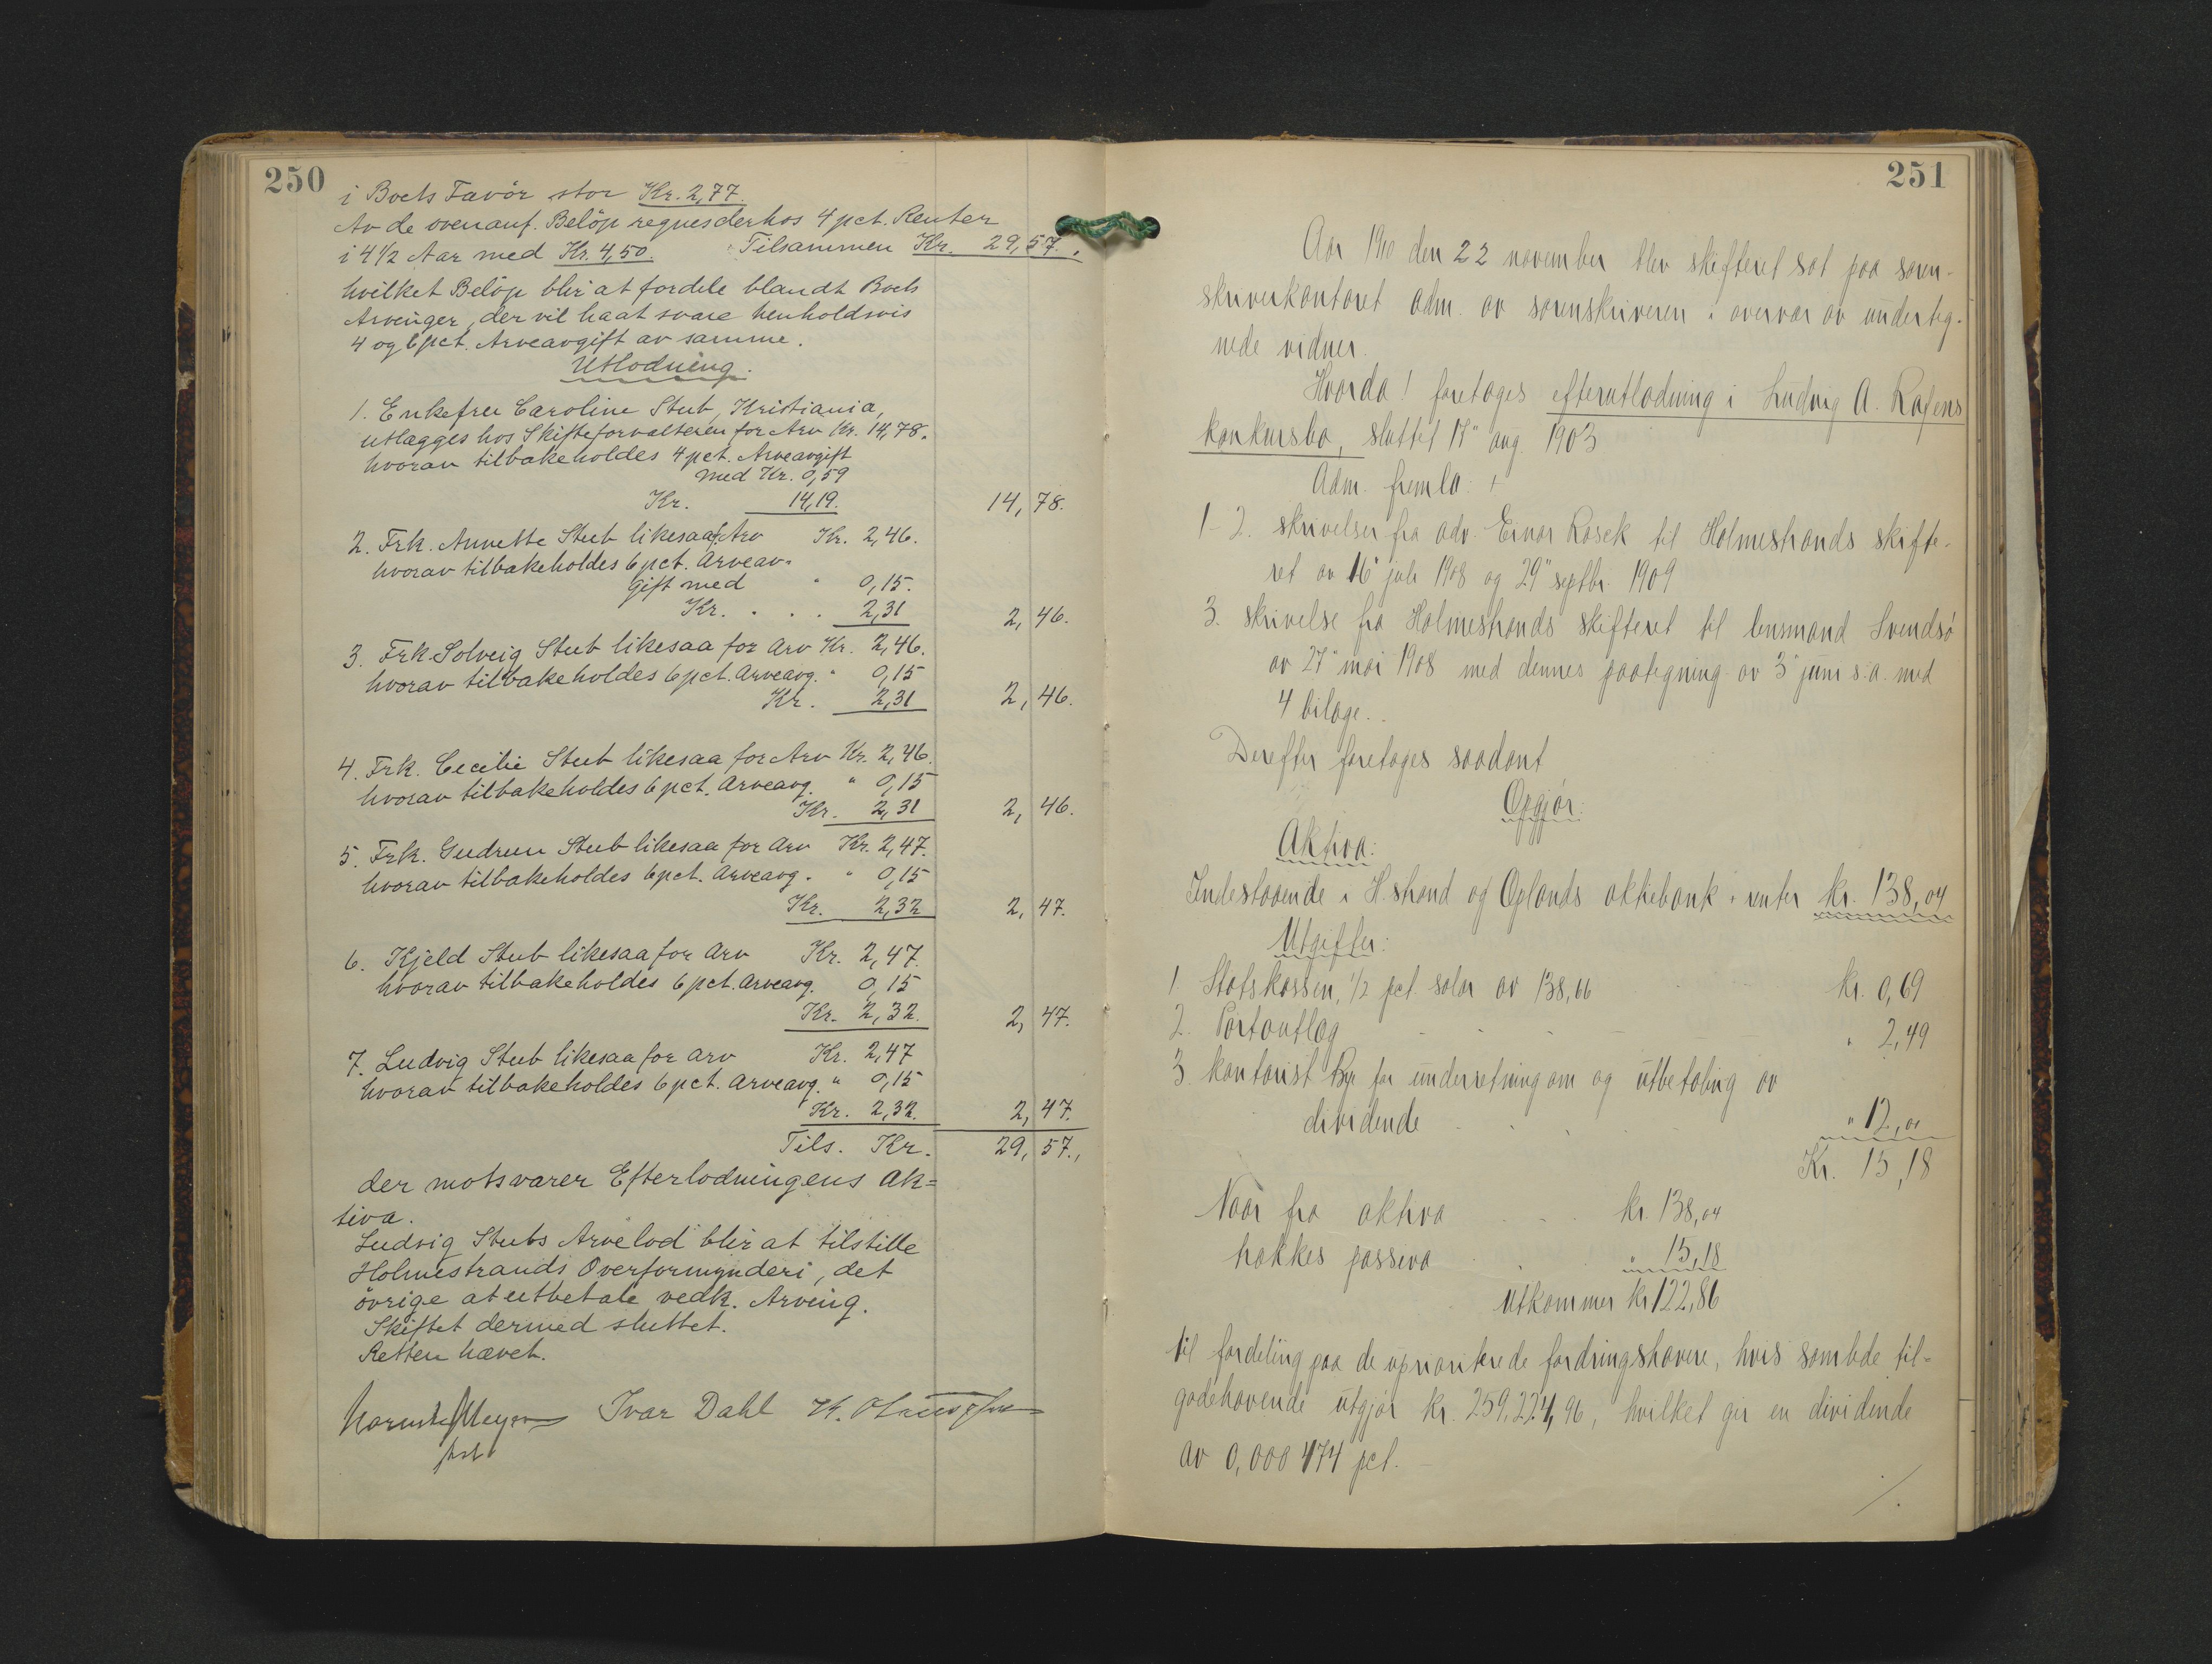 250
i Boets Favör stor Kr. 2,77.
Av de ovenanf. Belöp regnes derhos 4 pct. Renter
i 4 1/2 Aar med Kr. 4,50. Tilsammen Kr. 29,57.,
hvilket Belöp blir at fordele blandt Boets
Arvinger, der vil ha at svare henholdsvis
4 og 6 pct. Arveavgift av samme.
Utlodning.
1. Enkefru Caroline Stub, Kristiania,
utlægges hos Skifteforvalteren for Arv Kr. 14,78.
hvorav tilbakeholdes 4 pct. Arveavgift
med Kr. 0,59
Kr. 14,19. 14,78.
2. Frk. Annette Stub likesaa f. Arv Kr. 2,46.
hvorav tilbakeholdes 6 pct. Arveav-
gift med " 0,15.
Kr. . . . 2,31 2,46.
3. Frk. Solveig Stub likesaa for Arv Kr. 2,46.
hvorav tilbakeholdes 6 pct. Arveavg. " 0,15
Kr. 2,31 2,46.
4. Frk. Cecilie Stub likesaa for Arv Kr. 2,46.
hvorav tilbakeholdes 6 pct. Arveavg. " 0,15
Kr. 2,31 2,46.
5. Frk. Gudrun Stub likesaa for Arv Kr. 2,47.
hvorav tilbakeholdes 6 pct. Arveavg. " 0,15
Kr. 2,32 2,47.
6. Kjeld Stub likesaa for Arv Kr. 2,47.
hvorav tilbakeholdes 6 pct. Arveavg. 0,15
Kr. 2,32. 2,47.
7. Ludvig Stub likesaa for Arv Kr. 2,47
hvorav tilbakeholdes 6 pct. Arveavg. " 0,15
Kr. 2,32. 2,47.
Tils. Kr. 29,57.,
der motsvarer Efterlodningens Ak=
tiva.
Ludvig Stubs Arvelod blir at tilstille
Holmestrands Overformynderi, det
övrige at utbetale vedk. Arving.
Skiftet dermed sluttet.
Retten hævet.
Meyer Ivar Dahl
251
Aar 1910 den 22 november blev skifteret sat paa soren-
skriverkontoret adm. av sorenskriveren i overvær av underteg-
nede vidner.
Hvorda! foretages efterutlodning i Ludvig A. Rafens
konkursbo, sluttet 17" aug. 1903
Adm. fremla: +
1-2. skrivelser fra adv. Einar Rosek til Holmestrands skifte-
ret av 16" juli 1908 og 29" septbr. 1909
3. skrivelse fra Holmestrands skifteret til lensmand Svendsö
av 27" mai 1908 med dennes paategning av 3" juni s.a. med
4 bilage..
Derefter foretages saadant
Opgjör:
Aktiva:
Indestaaende i H.strand og Oplands aktiebank + renter kr. 138,04
Utgifter:
1. Statskassen, 1/2 pct. salær av 138,66 kr. 0,69
2. Portoutlæg " 2,49
3. kontorist By for underretning om og utbetaling av
dividende " 12,00
Kr. 15,18
Naar fra aktiva kr. 138,04
trækkes passiva " 15,18
Utkommer kr 122,86
til fordeling paa de uprioriterede fordringshavere, hvis samlede til-
godehavende utgjör kr. 259,224,96, hvilket gir en dividende
av 0,000474 pct.